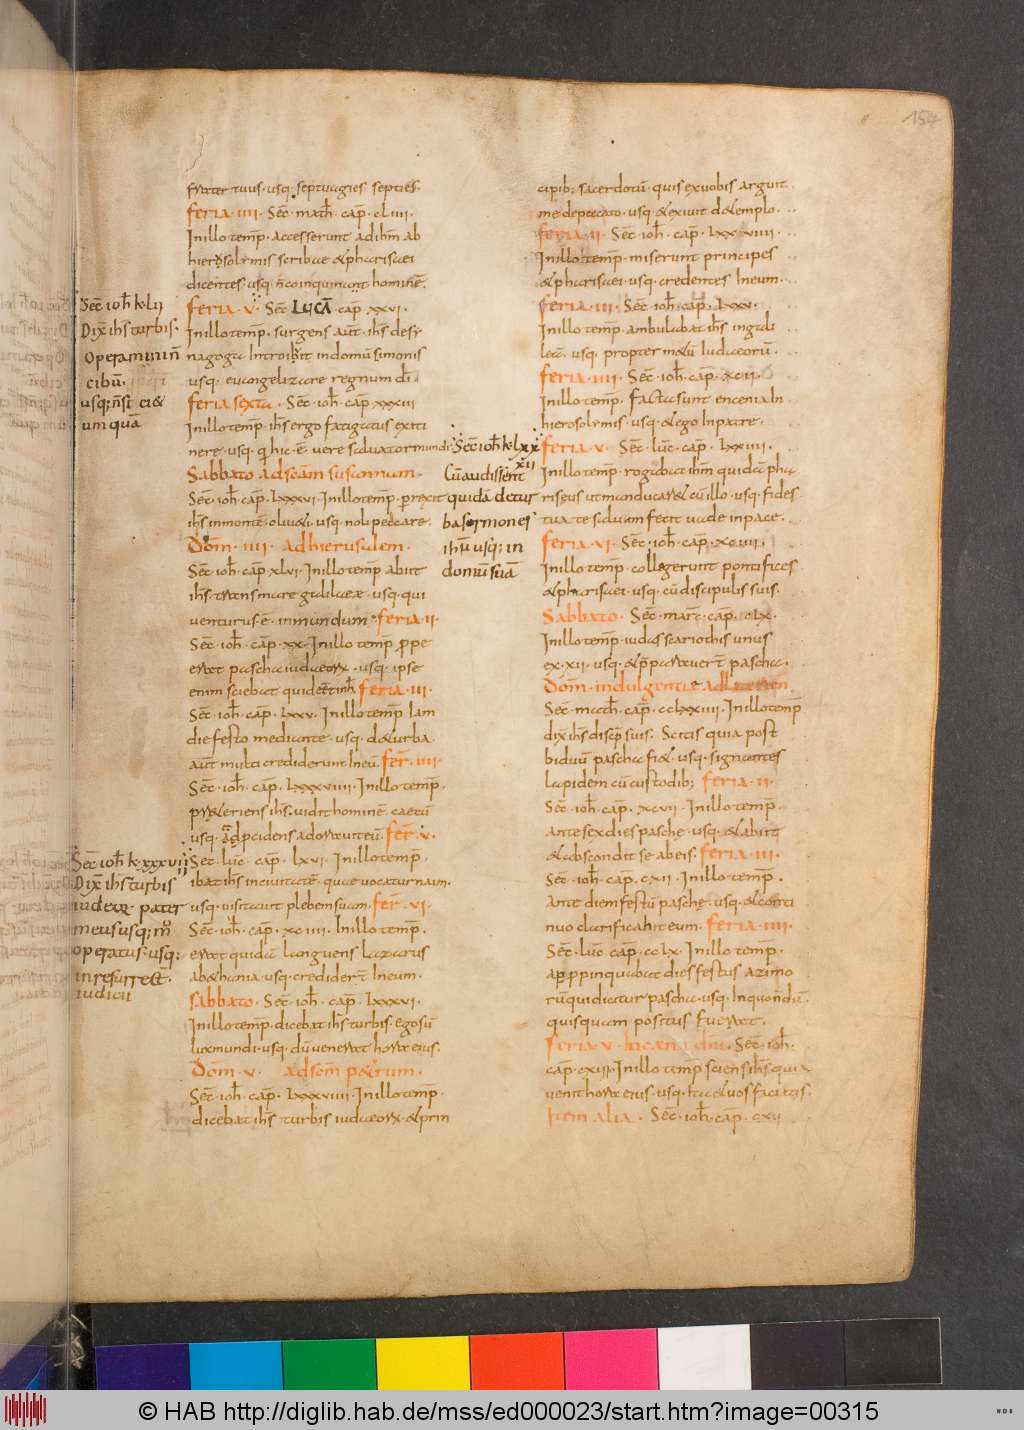 154
frater tuus · usq; septuagies septies ·
feria · IIII · Sec̄ · math̄ · cap̄ · CLIIII ·
In illo temp̄ · accesserunt ad ihm̄ ab
hierosolimis scribae & pharisaei
dicentes usq; n̄ coinquinant hominē ·
feria · V · Sec̄ LUCĀ · cap̄ · XXVI ·
In illo temp̄ · surgens aut̄ · ihs de sy
nagoga Introibit in domū simonis
usq; euangelizare regnum dī
feria sexta · Sec̄ · ioh̄ · cap̄ · XXXIII
In illo temp̄ · ihs ergo fatigatus ex iti
nere · usq; q hic · ē · vere saluator mundi
Sabbato ad scām susannam ·
Sec̄ · ioh̄ · cap̄ · LXXXVI · In illo temp̄ · perexit
ihs in montē · oliu&i · usq; noli peccare ·
Dom̄ · IIII · ad hierusalem ·
Sec̄ · ioh̄ · cap̄ · XLVI · In illo temp̄ abiit
ihs · trans mare galilaeae · usq; qui
venturus · ē · in mundum · feria · II ·
Sec̄ · ioh̄ · cap̄ · XX · In illo temp̄ prope
erat pascha iudaeorx · usq; ipse
enim sciebat quid eēt in hō feria · III ·
Sec̄ · ioh̄ · cap̄ · LXXV · In illo temp̄ Iam
die festo mediante · usq; d&urba
aut̄ multi crediderunt In eū · fer̄ · IIII ·
Sec̄ · ioh̄ · cap̄ · LXXXVIIII · In illo temp̄ ·
pr&eriens ihs · uidit hominē caecū
usq; & pcidens adorauit eū · fer̄ · V ·
Sec̄ · luc̄ · cap̄ · LXVI · In illo temp̄ ·
ibat ihs in ciuitatē · quae vocatur naim ·
usq; visitauit plebem suam · fer̄ · VI ·
Sec̄ · ioh̄ · cap̄ · XCIIII · In illo temp̄ ·
erat quidā languens Lazarus
a b&hania · usq; credidert̄ In eum ·
sabbato · Sec̄ · ioh̄ · cap̄ · LXXXVI ·
In illo temp̄ · dicebat ihs turbis · ego sū
lux mundi · usq; dū venerat hora eius ·
Dom̄ · V · ad scm̄ petrum ·
Sec̄ · ioh̄ · cap̄ · LXXXVIIII · In illo temp̄ ·
dicebat ihs turbis iudaeorx · & prin
Sec̄ ioh̄ k · LII
Dix̄ ihs turbis ·
Operamini n̄
cibū ·
usq; n̄ siti&
umquā
Sec̄ ioh̄ · k · XXXVII
Dix̄ ihs turbis
iudeorx · pater
meus usq; m̊
operatus · usq;
in resurrect̄ ·
iudicii
Sec̄ ioh̄ · k · LXX
XII
Cū audissent
quidā de tur
ba sermones
ihū usq; in
domū suā
cipib; sacerdotū · quis ex vobis arguit
me de peccato · usq; & exiuit de templo ·
feria · II · Sec̄ · ioh̄ · cap̄ · LXXVIIII ·
In illo temp̄ · miserunt principes
& pharisaei · usq; credentes In eum ·
feria · III · Sec̄ · ioh̄ · cap̄ · LXXV ·
In illo temp̄ · ambulabat ihs in gali
leā · usq; propter metū Iudaeorū ·
feria · IIII · Sec̄ · ioh̄ · cap̄ · XCII ·
In illo temp̄ · Facta sunt encenia In
hierosolimis · usq; & ego In patre ·
feria · V · Sec̄ · luc̄ · cap̄ · LXXIIII ·
In illo temp̄ · rogabat ihm̄ quidā pha
riseus ut manducar& cū illo · usq; fides
tua te saluam fecit uade in pace ·
feria · VI · Sec̄ · ioh̄ · cap̄ · XCVIII ·
In illo temp̄ · collegerunt pontifices
& pharisaei · usq; cū discipulis suis ·
Sabbato · Sec̄ · marc̄ · cap̄ · CLX ·
In illo temp̄ · iudas scariothis unus
ex · XII · usq; & p̄parauert̄ pascha ·
Dom̄ · indulgentiae ad lateran̄ ·
Sec̄ · math̄ · cap̄ · CCLXXIIII · In illo temp̄
dix̄ ihs discip̄ suis · Scitis quia post
biduū pascha fi& · usq; signantes
lapidem cū custodib; feria · II ·
Sec̄ · ioh̄ · cap̄ · XCVII · In illo temp̄ ·
Ante sex dies pasche · usq; & abiit
& abscondit se ab eis · feria · III ·
Sec̄ · ioh̄ · cap̄ · CXII · In illo temp̄ ·
Ante diem festū paschę · usq; & conti
nuo clarificabit eum · feria · IIII ·
Sec̄ · luc̄ · cap̄ · CCLX · In illo temp̄ ·
appropinquabat dies festus azimo
rū qui dicitur pascha · usq; In quo n̄dū
quisquam positus fuerat ·
feria · V · In cena dni · Sec̄ · ioh̄ ·
cap̄ · CXIII · In illo temp̄ sciens ihs quia
venit hora eius · usq; Ita & vos faciatis ·
Item alia · Sec̄ · ioh̄ · cap̄ · CXII
© HAB http://diglib.hab.de/mss/ed000023/start.htm?image=00315
WDB